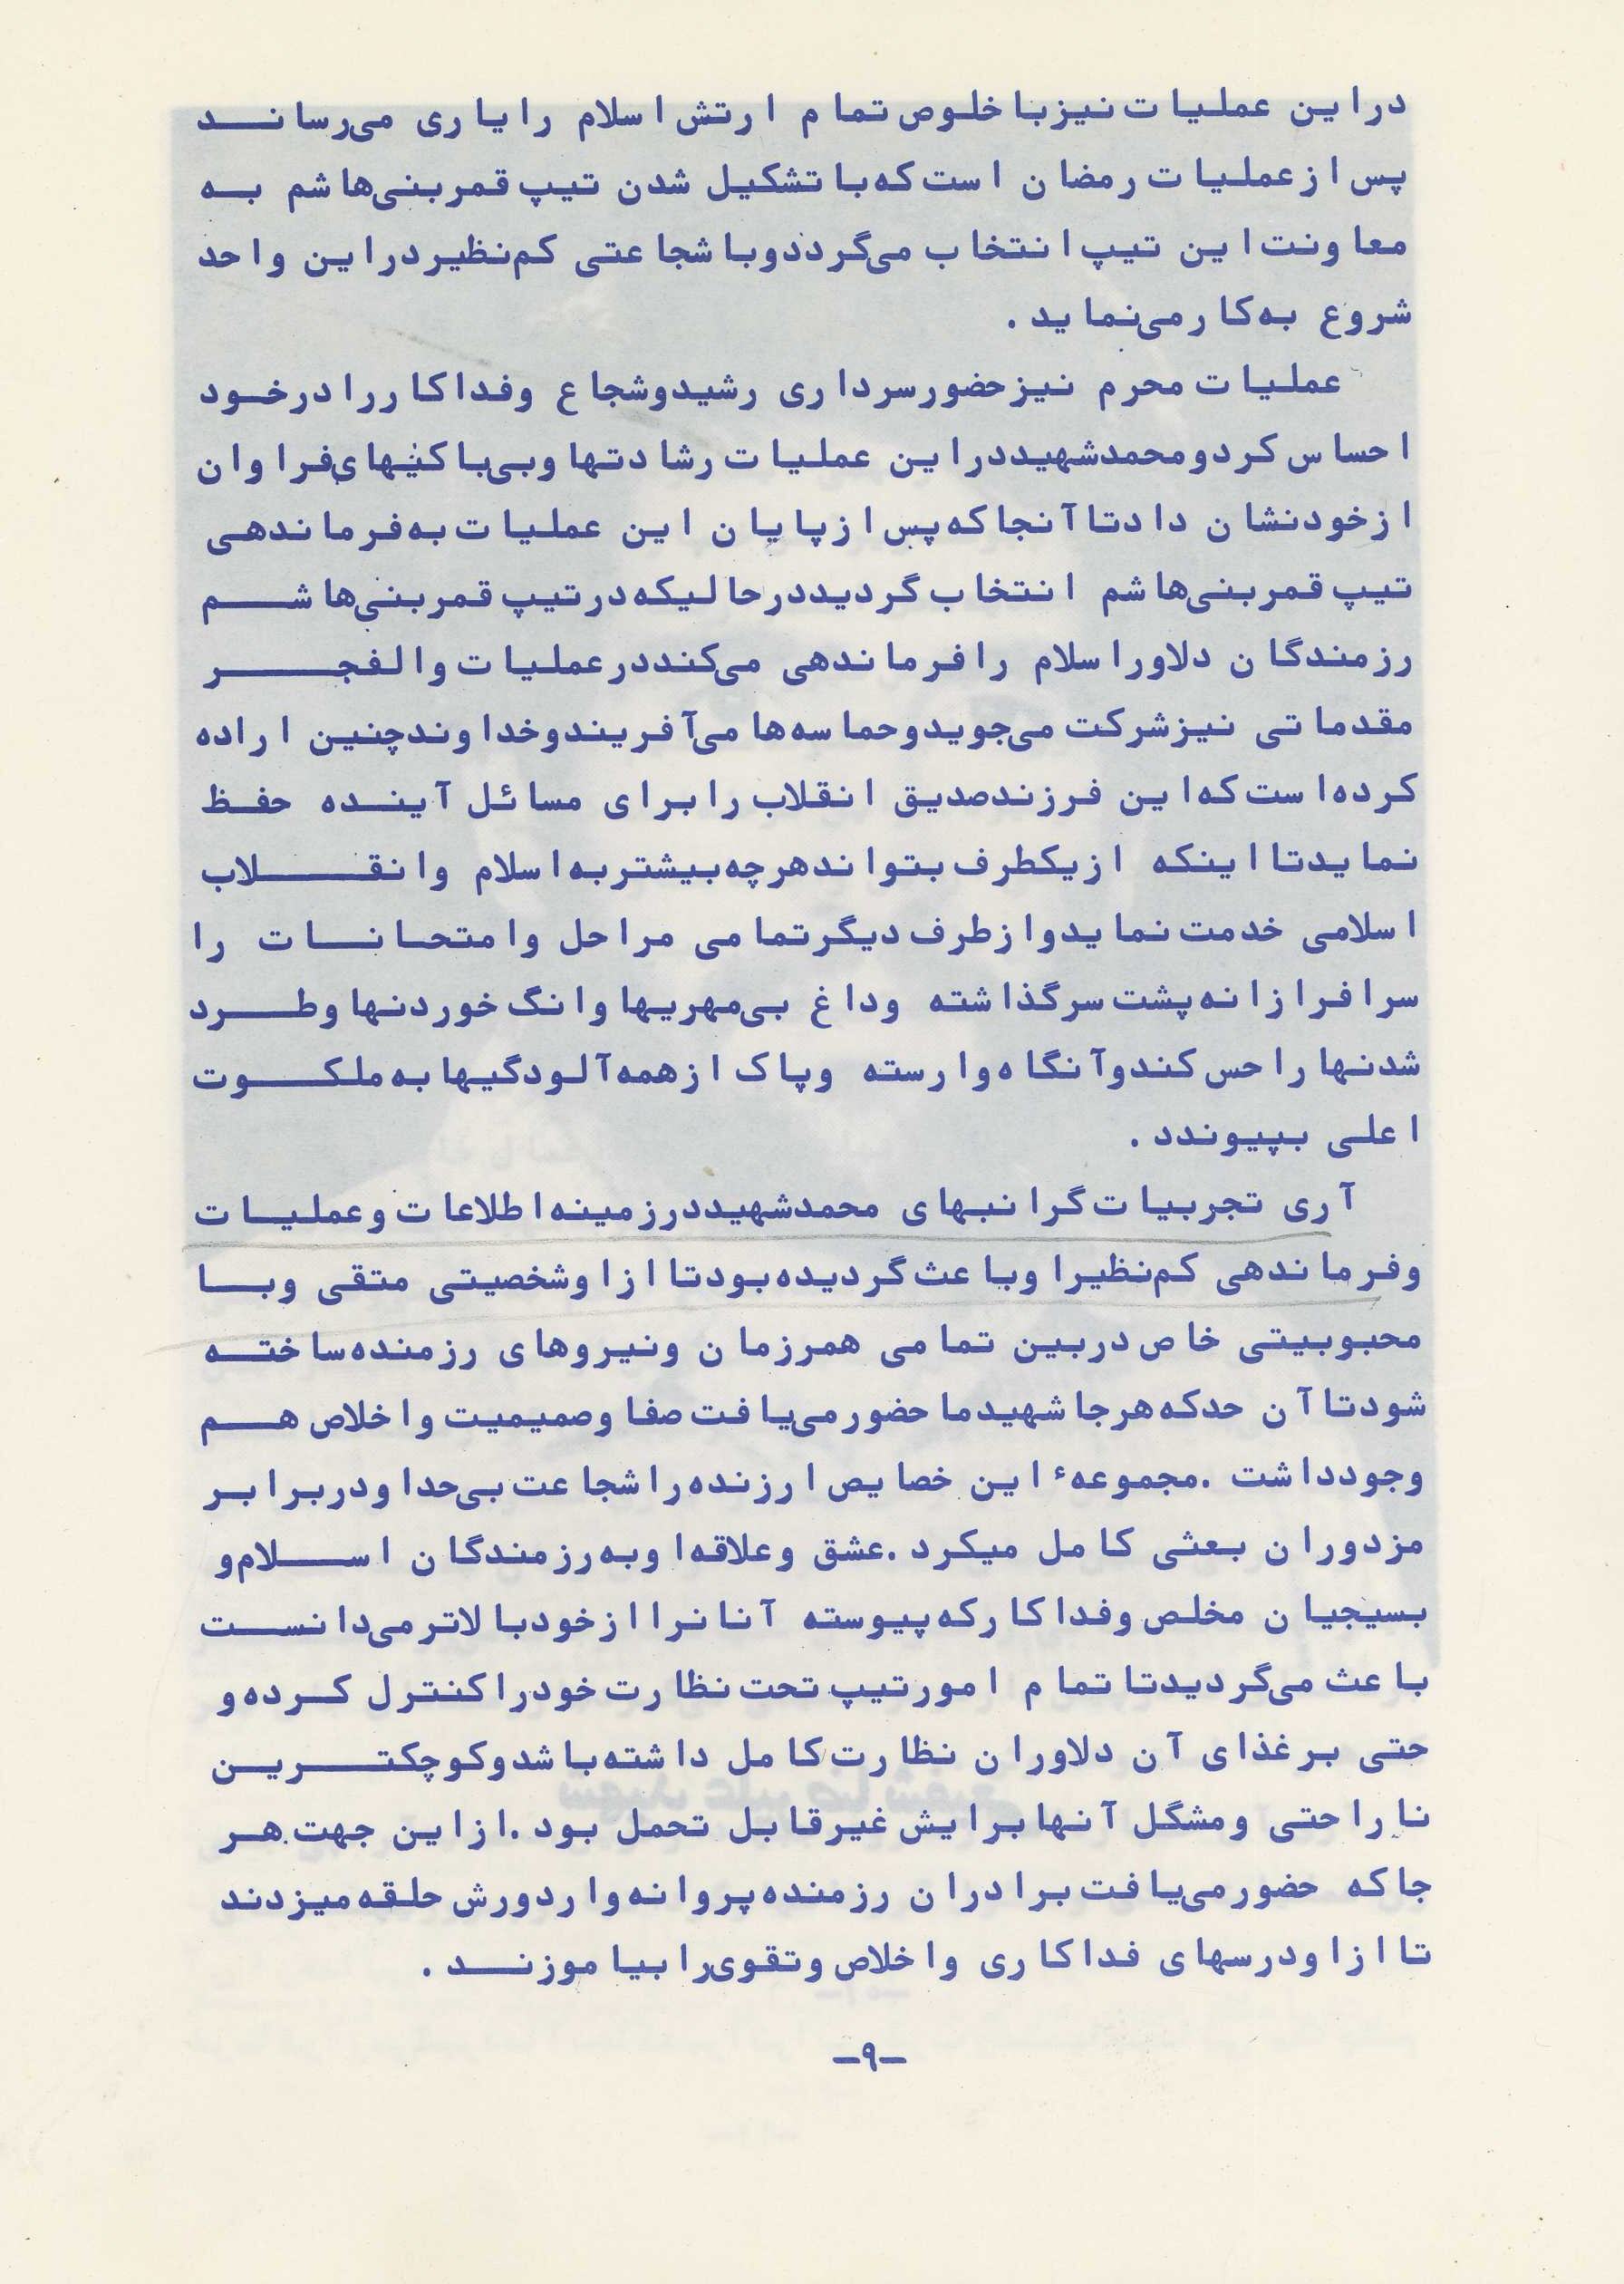 دراین عملیات نیزبا خلوص تمام ارتش اسلام رایاری می‌رساند
پس ازعملیات رمضان است که با تشکیل شدن تیپ قمربنی‌هاشم به
معاونت این تیپ انتخاب می‌گرددوبا شجاعتی کم‌نظیردراین واحد
شروع به‌کارمی‌نماید.
عملیات محرم نیزحضورسرداری رشیدوشجاع وفداکاررادرخود
احساس کردومحمدشهیددراین عملیات رشادتها وبی‌باکیهای‌فراوان
ازخودنشان دادتاآنجاکه پس ازپایان این عملیات به‌فرماندهی
تیپ قمربنی‌هاشم انتخاب گردیددرحالیکه درتیپ قمربنی‌هاشم
رزمندگان دلاوراسلام رافرماندهی می‌کنددرعملیات والفجر
مقدماتی نیزشرکت می‌جویدوحماسه‌ها می‌آفریندوخداوندچنین اراده
کرده‌است که‌این فرزندصدیق انقلاب رابرای مسائل آینده حفظ
نمایدتااینکه ازیکطرف بتواندهرچه‌بیشتربه‌اسلام وانقلاب
اسلامی خدمت نمایدوازطرف دیگرتمامی مراحل وامتحانات را
سرافرازانه‌پشت سرگذاشته وداغ بی‌مهریها وانگ خوردنها وطرد
شدنها راحس کندوآنگاه‌وارسته وپاک ازهمه‌آلودگیها به‌ملکوت
اعلی بپیوندد.
آری تجربیات گرانبهای محمدشهیددرزمینه‌اطلاعات وعملیات
وفرماندهی کم‌نظیراوباعث گردیده‌بودتاازاوشخصیتی متقی وبا
محبوبیتی خاص دربین تمامی همرزمان ونیروهای رزمنده‌ساخته
شودتاآن حدکه‌هرجا شهیدما حضورمی‌یافت صفا وصمیمیت واخلاص هم
وجودداشت .مجموعهٔ این خصایص ارزنده‌راشجاعت بی‌حداودربرابر
مزدوران بعثی کامل میکرد.عشق وعلاقه‌اوبه‌رزمندگان اسلام‌و
بسیجیان مخلص وفداکارکه‌پیوسته آنانراازخودبالاترمی‌دانست
باعث می‌گردیدتاتمام امورتیپ تحت نظارت خودراکنترل کرده‌و
حتی برغذای آن دلاوران نظارت‌کامل داشته‌باشدوکوچکترین
ناراحتی ومشگل آنهابرایش غیرقابل تحمل بود.ازاین جهت هر
جاکه حضورمی‌یافت برادران رزمنده‌پروانه‌واردورش حلقه‌میزدند
تاازاودرسهای فداکاری واخلاص وتقوی‌رابیاموزند.
-۹-